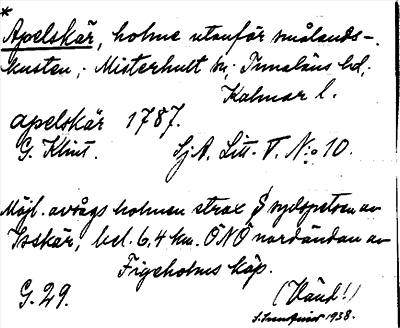 *
Apelskär, holme utanför smålands-
kusten; Misterhult sn; Tunaläns hd,
Kalmar l.
apelskär 1787.
G. Klint. SjA. Litt. T. No: 10.
Möjl. avsågs holmen strax S sydspetsen av
Isskär; bel. 6,4 km. ÖNÖ nordändan av
Figeholms köp.
G. 29. (Vänd!)
1938.